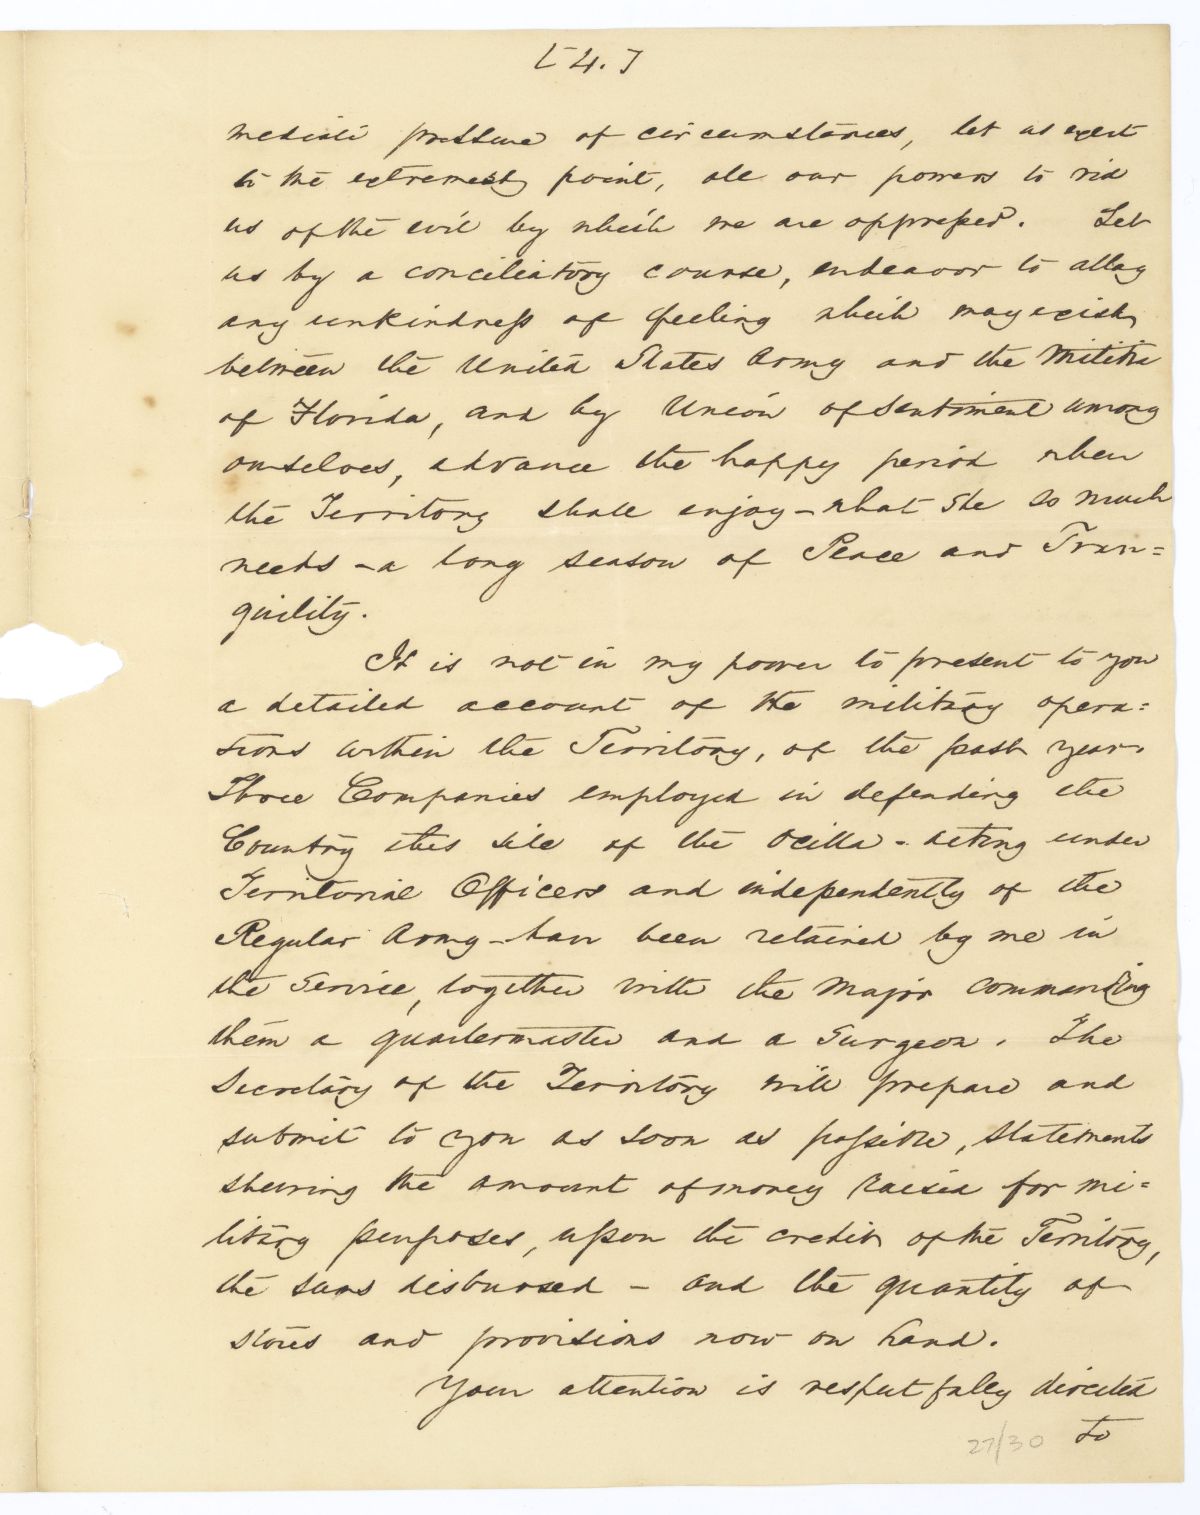 [4.]
mediate pressure of circumstances, let us exert
to the extremest point, all our powers to rid
us of the evil by which we are oppressed. Let
us by a conciliatory course, endeavor to allay
any unkindness of feeling which may exist
between the United States Army and the Militia
of Florida, and by Union of Sentiment among
ourselves, advance the happy period when
the Territory shall enjoy - what She so much
needs - a long season of Peace and Tran=
quility.
It is not in my power to present to you
a detailed account of the military opera=
tions within the Territory, of the past year.
Three Companies employed in defending the
Country this side of the Ocilla - acting under
Territorial Officers and independently of the
Regular Army - have been retained by me in
the Service, together with the Major commanding
them a quartermaster and a Surgeon. The
Secretary of the Territory will prepare and
submit to you as soon as possible, statements
shewing the amount of money raised for mi=
litary purposes, upon the credit of the Territory,
the sums disbursed - and the quantity of
stores and provisions now on hand.
Your attention is respectfully directed
to
27/30